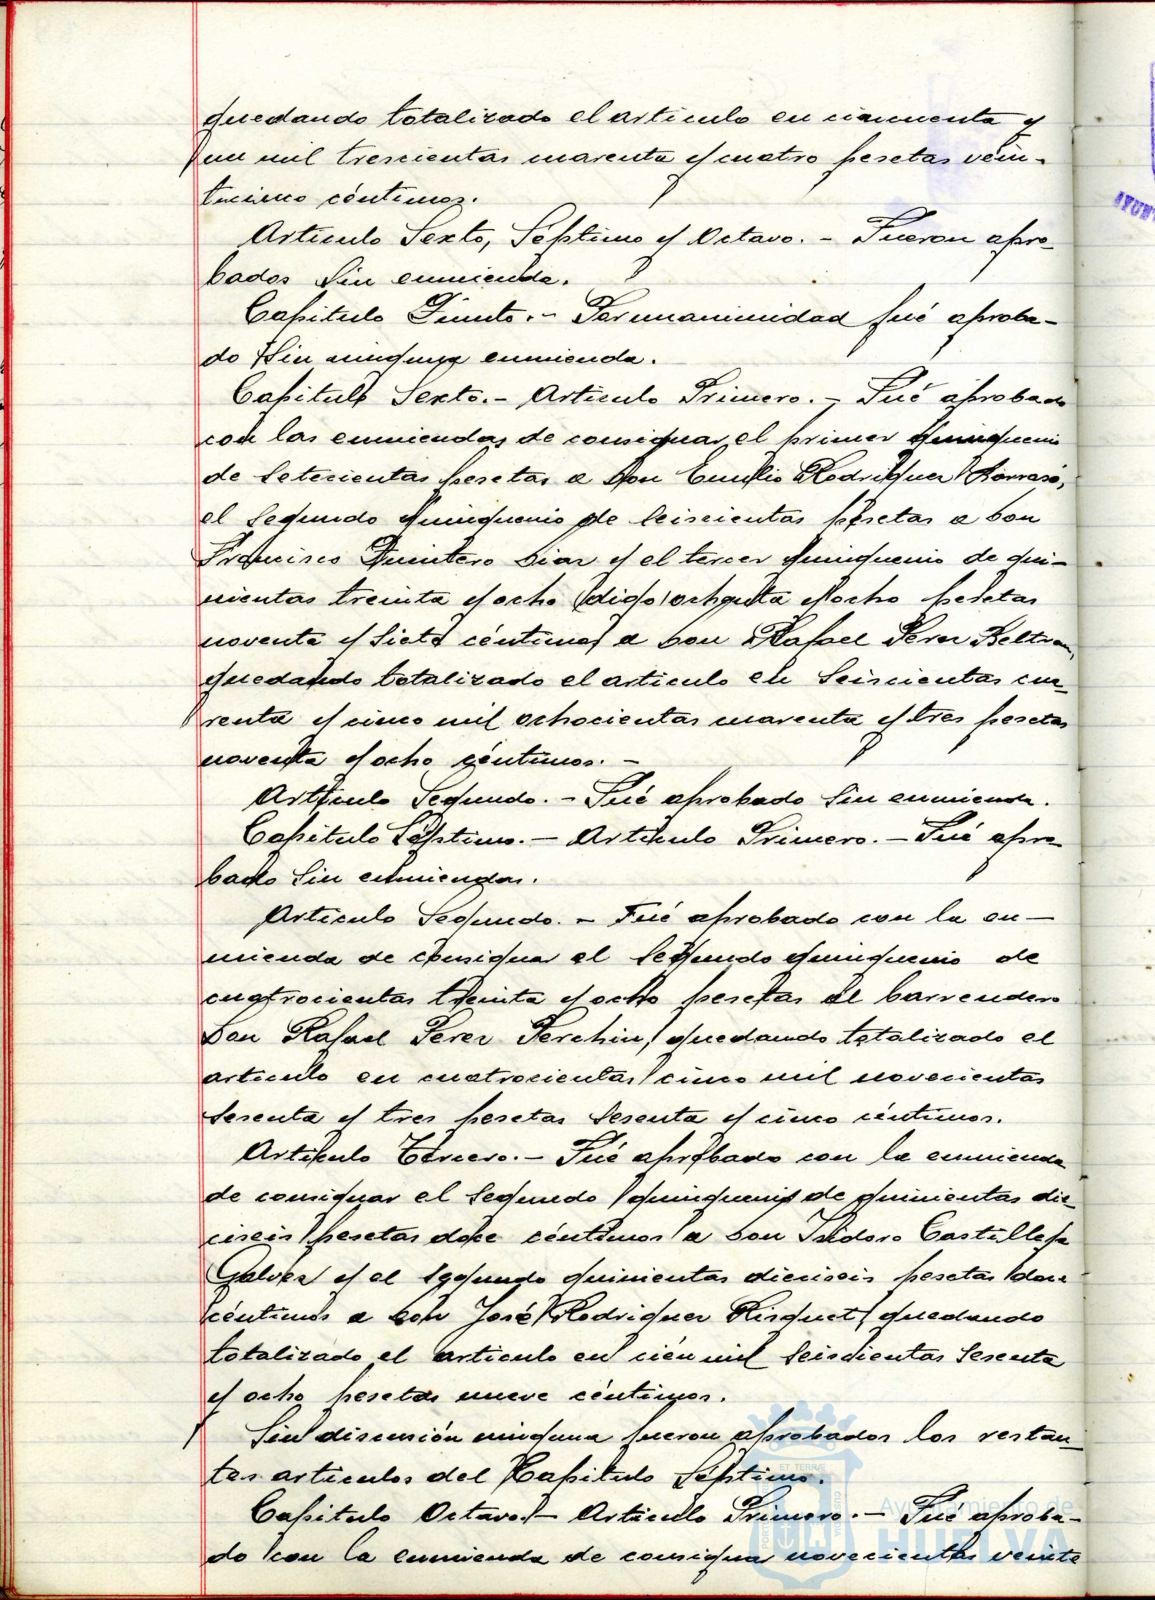 quedando totalizado el articulo en cincuenta y
un mil trescientas cuarenta y cuatro pesetas vein-
ticinco céntimos.
Articulo Sexto, Séptimo y Octavo. - Fueron apro-
bados sin enmienda.
Capitulo Quinto. - Por unanimidad fué aproba-
do sin ninguna enmienda.
Capitulo Sexto. - Articulo Primero. - Fué aprobado
con las enmiendas de consignar el primer quinquenio
de setecientas pesetas a Don Emilio Rodriguez
el segundo quinquenio de seiscientas pesetas a Don
Francisco Quintero Diaz y el tercer quinquenio de qui-
nientas treinta y ocho digo ochenta y ocho pesetas
noventa y siete céntimos a Don Rafael Perez Beltran,
quedando totalizado el articulo en seiscientas cua-
renta y cinco mil ochocientas cuarenta y tres pesetas
noventa y ocho céntimos. -
Articulo Segundo. - Fué aprobado sin enmienda.
Capitulo Séptimo. - Articulo Primero. - Fué apro-
bado sin enmiendas.
Articulo Segundo. - Fué aprobado con la en-
mienda de consignar el segundo quinquenio de
cuatrocientas treinta y ocho pesetas al barrendero
Don Rafael Perez Perchin, quedando totalizado el
articulo en cuatrocientas cinco mil novecientas
sesenta y tres pesetas sesenta y cinco céntimos.
Articulo Tercero. - Fué aprobado con la enmienda
de consignar el segundo quinquenio de quinientas die-
ciseis pesetas doce céntimos a Don Isidoro Castilleja
Galvez y el segundo quinientas dieciseis pesetas doce
céntimos a Don José Rodriguez Risquet, quedando
totalizado el articulo en cien mil seiscientas sesenta
y ocho pesetas nueve céntimos.
Sin discusión ninguna fueron aprobados los restan-
tes articulos del Capitulo Séptimo.
Capitulo Octavo. - Articulo Primero. - Fué aproba-
do con la enmienda de consignar novecientas veinte
Ayuntamiento de
HUELVA